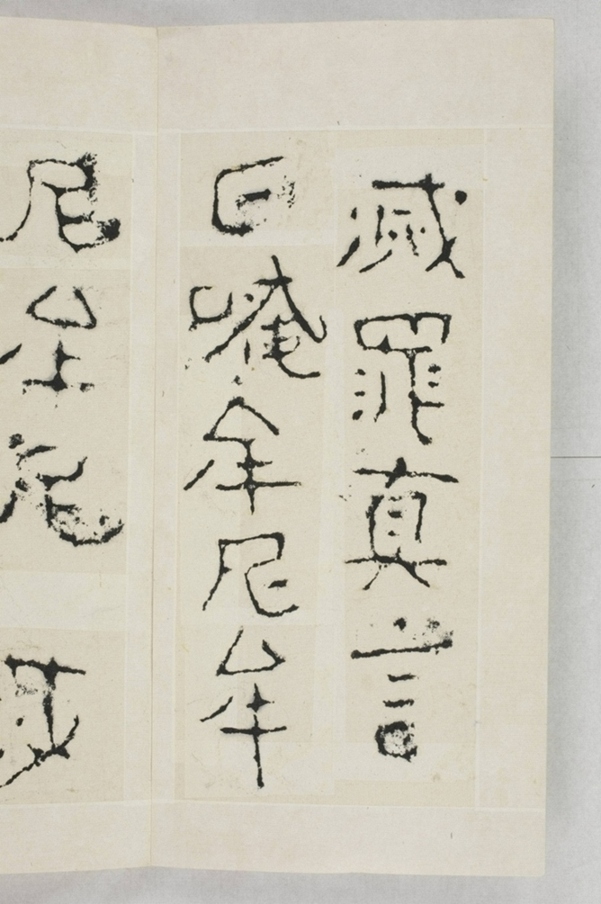 滅罪真言
曰唵牟尼牟
尼牟尼